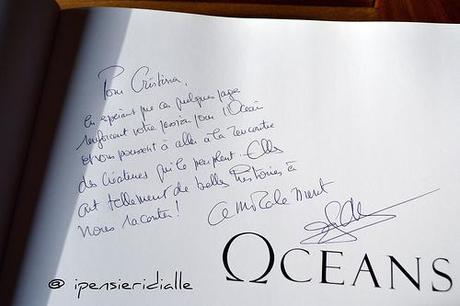 Pour Cristina,
En espérant que ces quelques pages
renforcent votre passion pour l'Océan
et vous poussent à aller à la rencontre
des créatures qui le peuplent... Elles
ont tellement de belles histoires à
nous raconter!
Amicalement
ΩCEANS
@ ipensieridialle